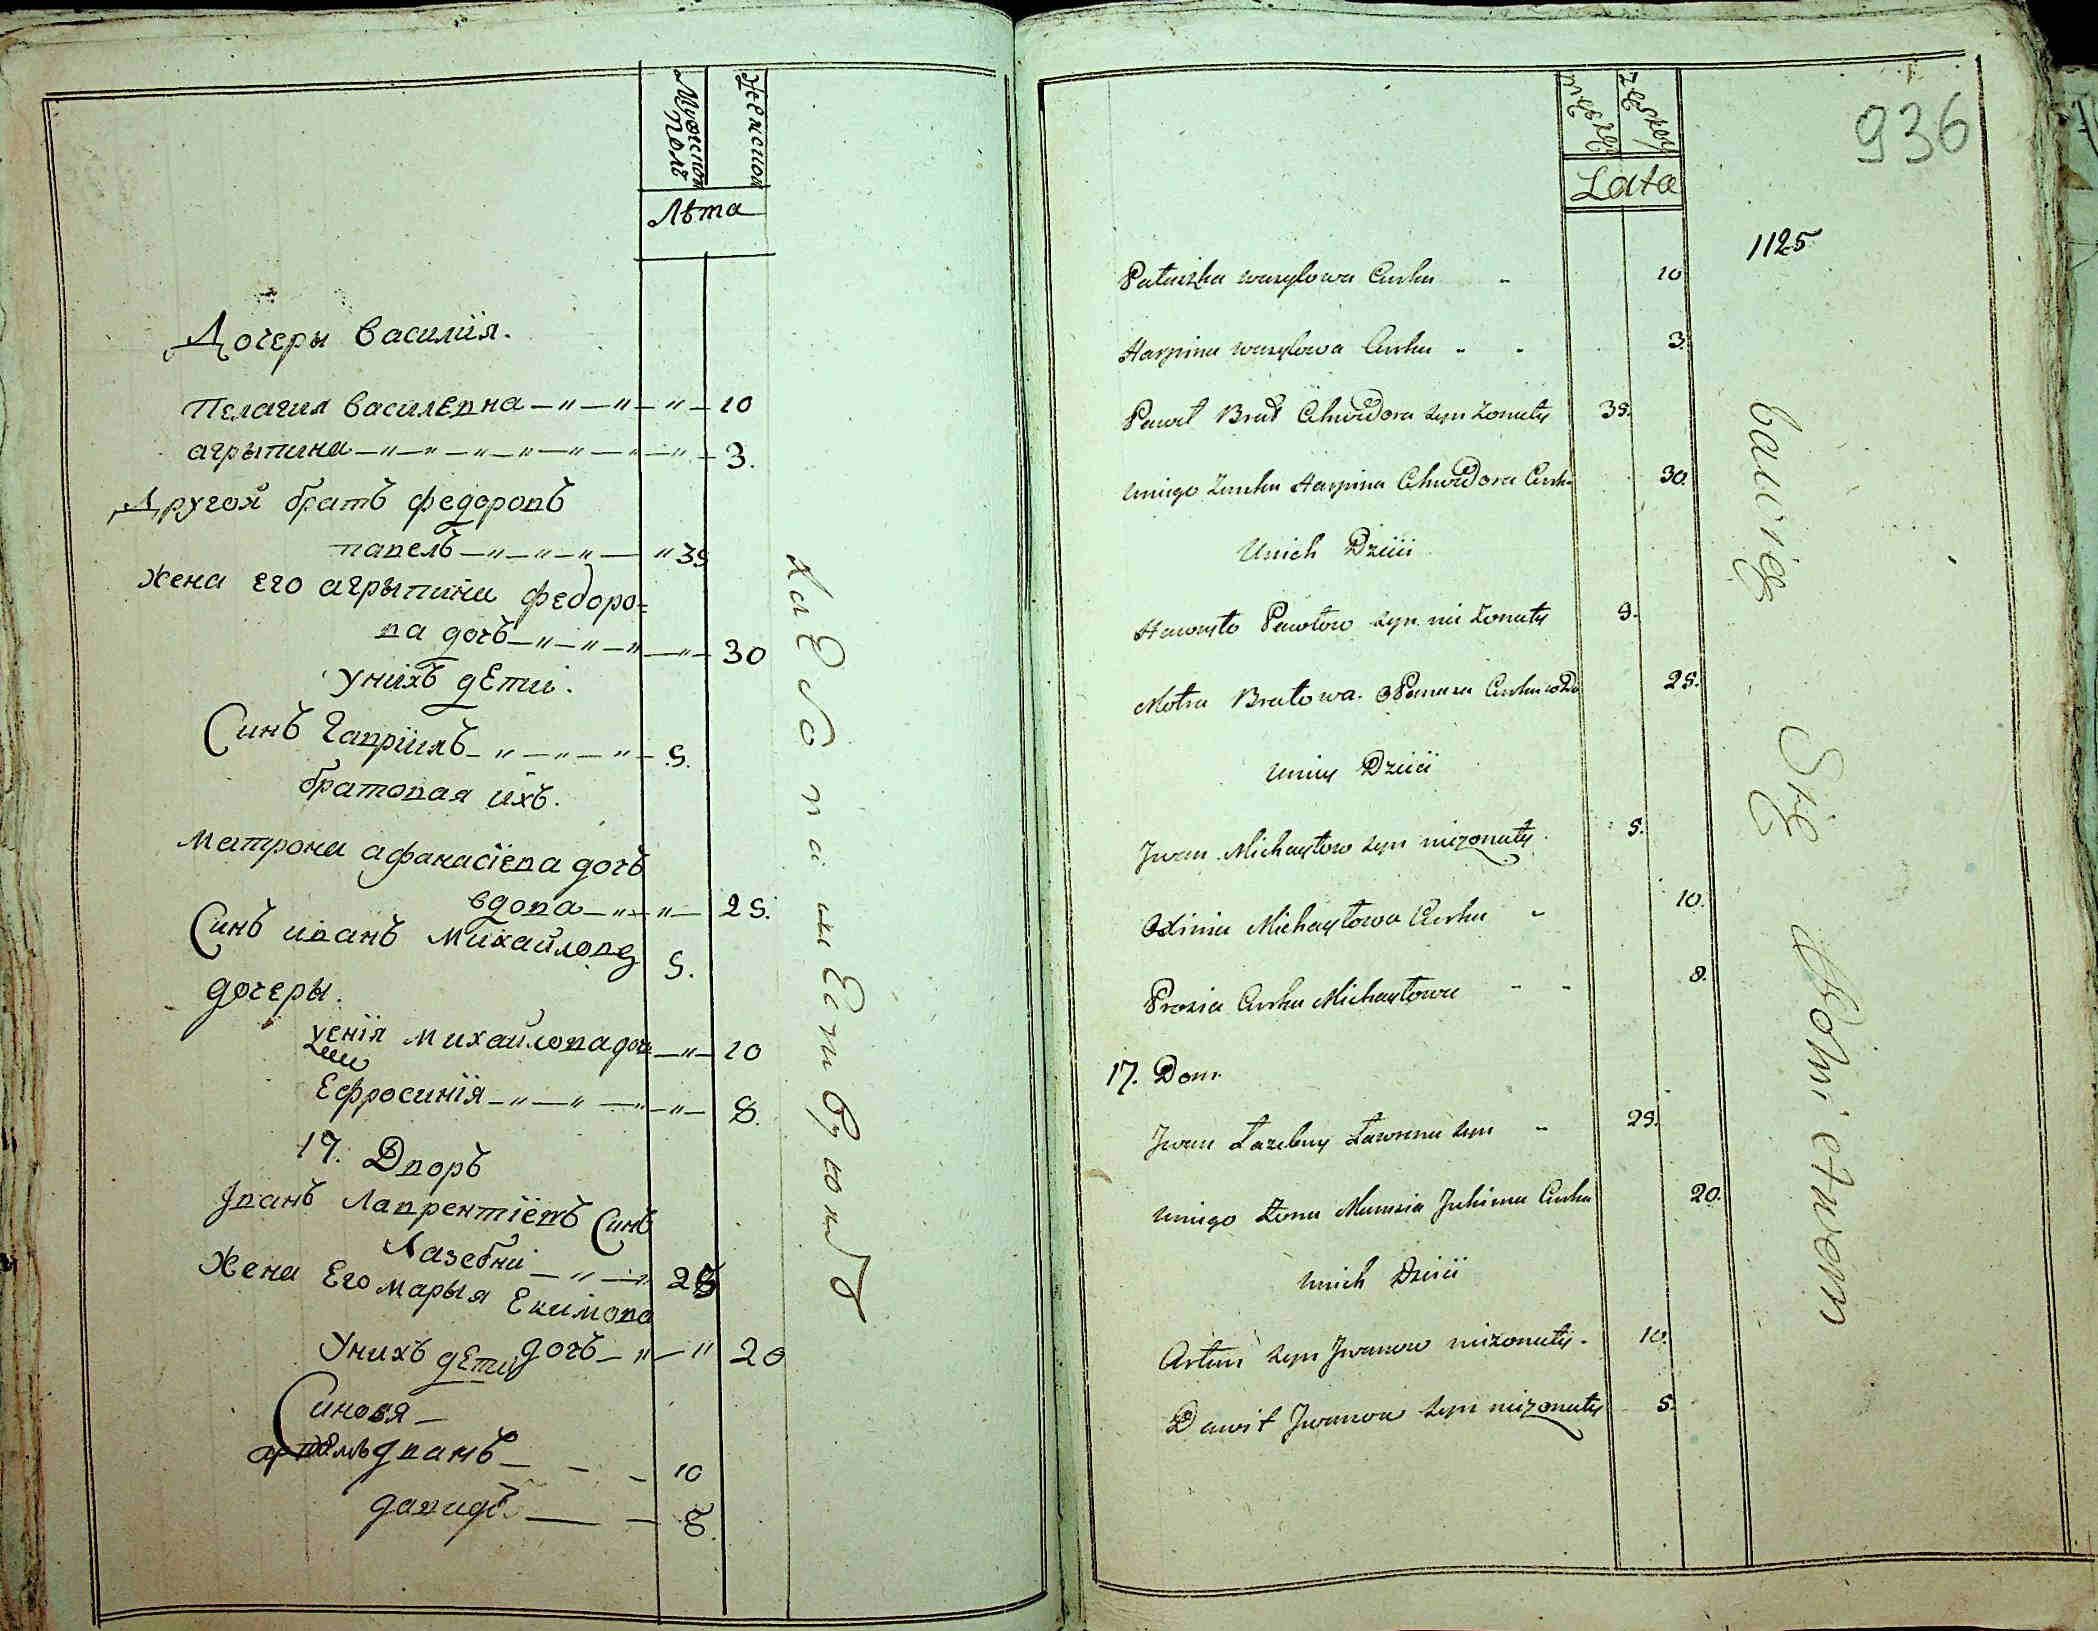 Мужеской Полъ
Женской
Лѣта
Дочеры василия.
Пелагия василевна 10
агрыпина 3.
Другой братъ федоровъ
павелъ 35
жена его агрыпина федоро=
ва дочъ 30
унихъ дети.
Синъ гавриилъ 9.
братовая ихъ.
матрона афанасиева дочъ
вдова 25.
Синъ иванъ михайловъ 5.
дочеры.
ксения михайлова дочъ 10
Ефросиния 8.
17. Дворъ
Иванъ Лаврентиевъ Синъ
Лазебни 25
Жена Его марыя Екимова
дочъ 20
Унихъ дети
Синовя
артемъ иванъ 10
давидъ 8.
хлебопашествомъ
męzkey
żęskey
Lata
936
1125
Pałaszka wasylowa Curka 10
Harpina wasylowa Curka 3.
Paweł Brat Chwedora syn żonaty 35.
uniego Zonka Harpina Chwedora Curka 30.
Unich Dzieci
Hawryło Pawłow syn nie żonaty 9.
Motra Bratowa Panasa Curka wdo 25.
uniey Dzieci
Jwan Michayłow syn nieżonaty 5.
Oxinia Michayłowa Curka 10.
Prosia Curka Michayłowa 8.
17. Dom.
Jwan Łazebny Ławrena syn 25.
uniego żona Marusia Juhima Curka 20.
unich Dzieci
Artem syn Jwanow nieżonaty. 10.
Dawit Jwanow syn nieżonaty 8.
bawią Się Rolnictwem